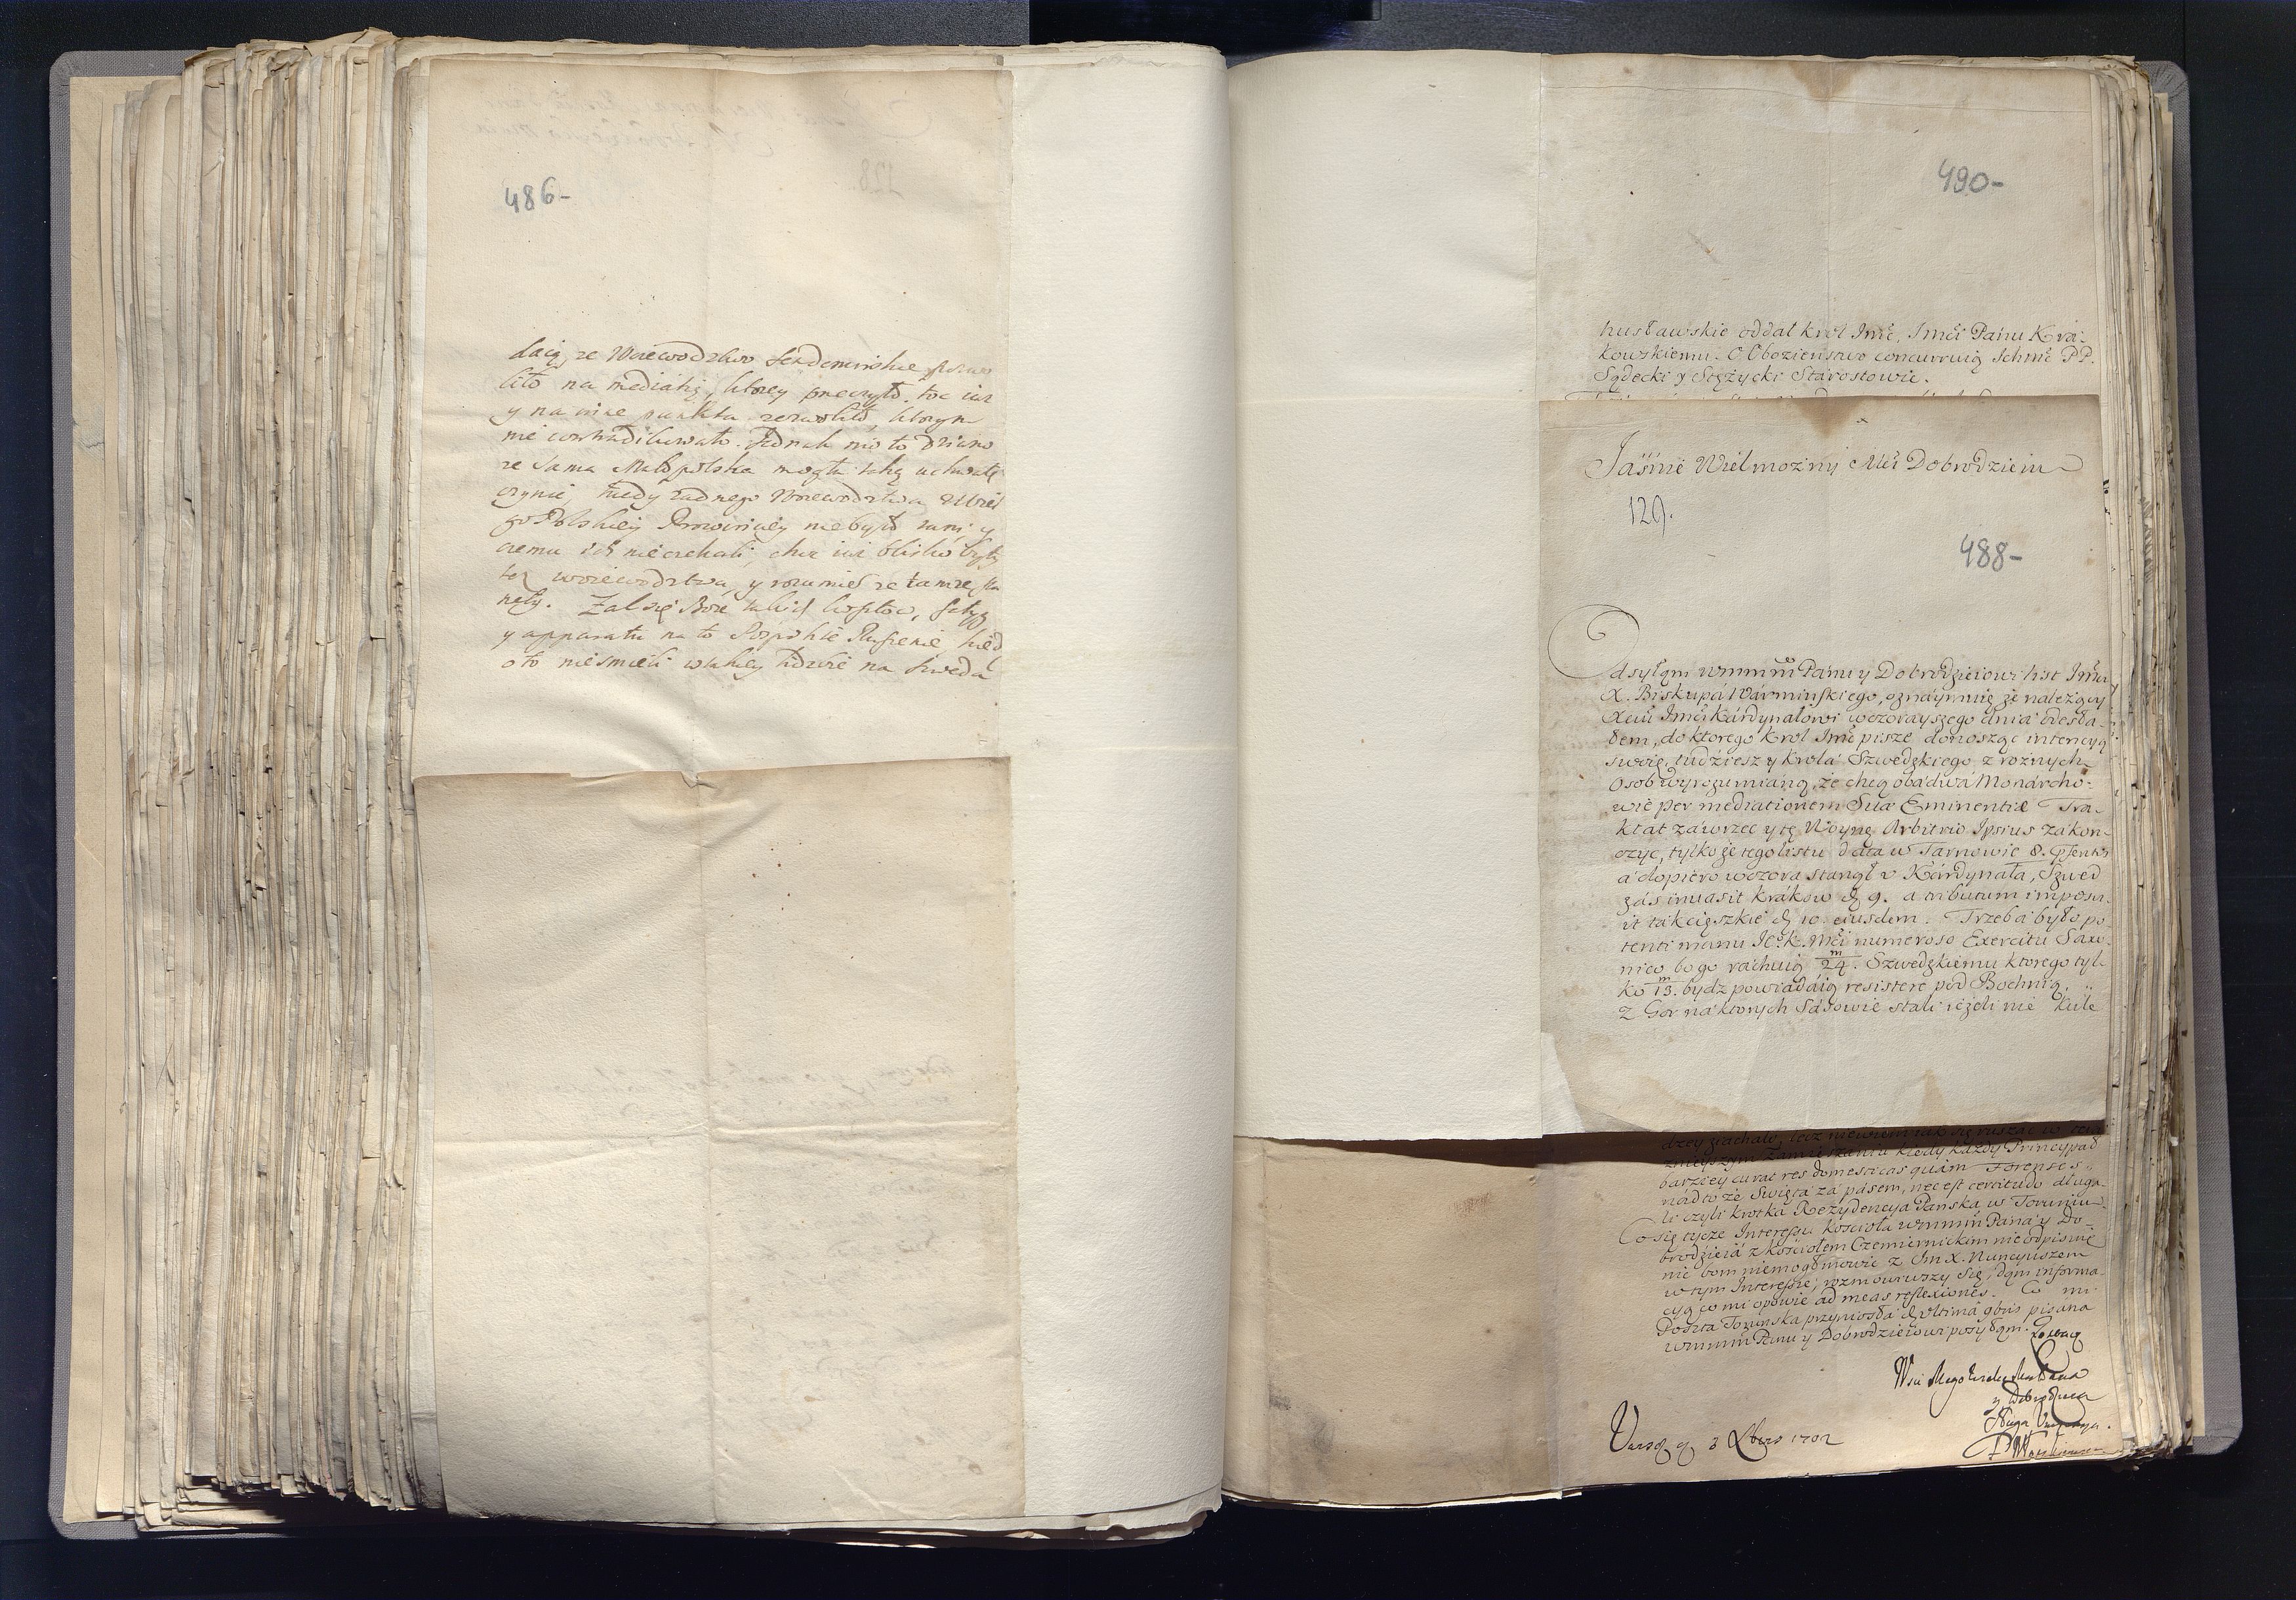 486-
daią, ze Woiewodztwo Sendomirskie
liło na mediatią, ktorey przeczyło. toc iuz
y na inne punkta zezwoliło, ktorym
nie contradikowało. Jednak mię to dziwno
ze sama Małopolska mogła taką uchwałę
czynić, kiedy zadnego Woiewodztwa Wiel
go Polskiey Prowinciey niebyło tam; y
czemu ich nieczekali, choc iuz blisko były
te woiewodztwa, y rozumieć ze tamze sta
nęły. Zal się Boze takich kosztow,
y apparatu na to Pospolite Ruszenie, kied
oto nieśmieli wtakiey liczbie na Sweda
490-
husławskie oddał Krol Jmć, Jmći Panu Kra-
kowskiemu. O Obozieństwo concurruią Ichmć PP.
Sądecki y Stężycki Starostowie.
Jaśnie Wielmozny Mći Dobrodzieiu
129.
488-
Odsyłąm wmmm Panu y Dobrodzieiowi list Jmći
X. Biskupá Warminskiego, oznaymuię że należący
Xciu Jmći Kárdynałowi wczorayszego dnia odesła-
łem, do ktorego Krol Jmć pisze donosząc intencyą
swoię, tudziesz y Krolá Szwedzkiego z roznych
Osob wyrozumianą, że chcą obádwá Monárcho-
wie per mediationem Suæ Eminentiæ Tra-
ktat záwrzec y tę Woynę Arbitrio Ipsius zákon-
czyc, tylko że tego listu data w Tarnowie 8. psentis
á dopiero wczora stanął v Kárdynała, Szwed
záś inuasit Kráków d. 9. a tributum imposu-
it ták cięszkie d. 10. eiusdem. Trzebá było po-
tenti manu Je° K. Mći numeroso Exercitu Saxo-
nico bo go ráchuią m/24. Szwedzkiemu ktorego tyl-
ko m/13. bydz powiadáią resistere pod Bochnią,
z Gor ná ktorych Sásowie stali ieżeli nie kule
dzey ziacháło, lecz niewiem iak się ruszác w
znieyszym Zamieszaniu kiedy każdy Princypał
bárziey curat res domesticas quàm Forenses,
nádto że Swięta zá pásem, nec est certitudo długa-
li czyli krotka Rezydencya Pańska w Toruniu.
Co się tycze Interessu Kościoła wmmm Paná y Do-
brodzieiá z Kościołem Czemiernickim nieodpisuię
nic bom niemogł mowic z Jm X. Nuncyuszem
w tym Interessie; rozmowiwszy się, dąm informa-
cyą co mi opowie ad meas reflexiones. Co mi
Poczta Toruńska przyniosłá d. vltima 9bris pisana
wmmm Panu y Dobrodzieiowi posyłąm. Zostaię
Pana
y Dobrodzieia
Sługą
Vars d. 3 Xbris 1702